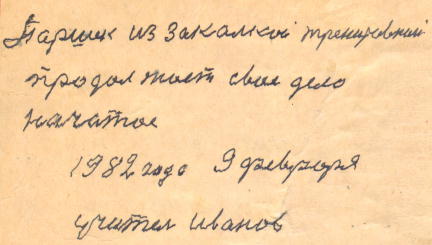 Паршек из закалкой тренировкий
продолжает свое дело
начатое
1982 года 9 февроря
учител иванов